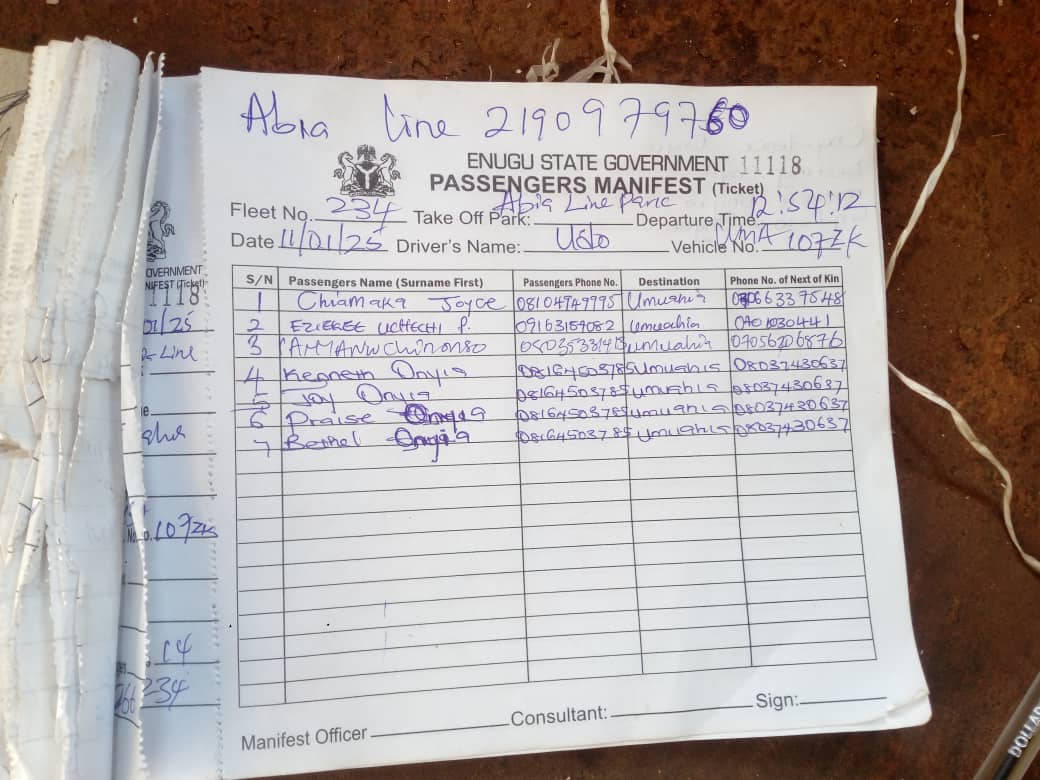 Abia Line 2190979760
ENUGU STATE GOVERNMENT 11118
PASSENGERS MANIFEST (Ticket)
Fleet No. 234 Take Off Park: Abia Line Park Departure Time 12:54:12
Date 11/01/25 Driver's Name: Udo Vehicle No. UMA 107ZK
S/N Passengers Name (Surname First) Passengers Phone No. Destination Phone No. of Next of Kin
1 Chiamaka Joyce 08104949995 Umuahia
2 EZIEKEE UCHECHI P. 09163159082 Umuahia
3 Chinonso Umuahia 07056206876
4 Kenneth Onyia 08164503785 Umuahia 08037430637
5 Joy Onyia 08164503785 Umuahia 08037430637
6 Praise Onyia 08164503785 Umuahia 08037430637
7 Bethel Onyia 08164503785 Umuahia 08037430637
Manifest Officer Consultant: Sign:
OVERNMENT
11118
01/25
Line
No. 107ZK
14
266 234
DOLLAR